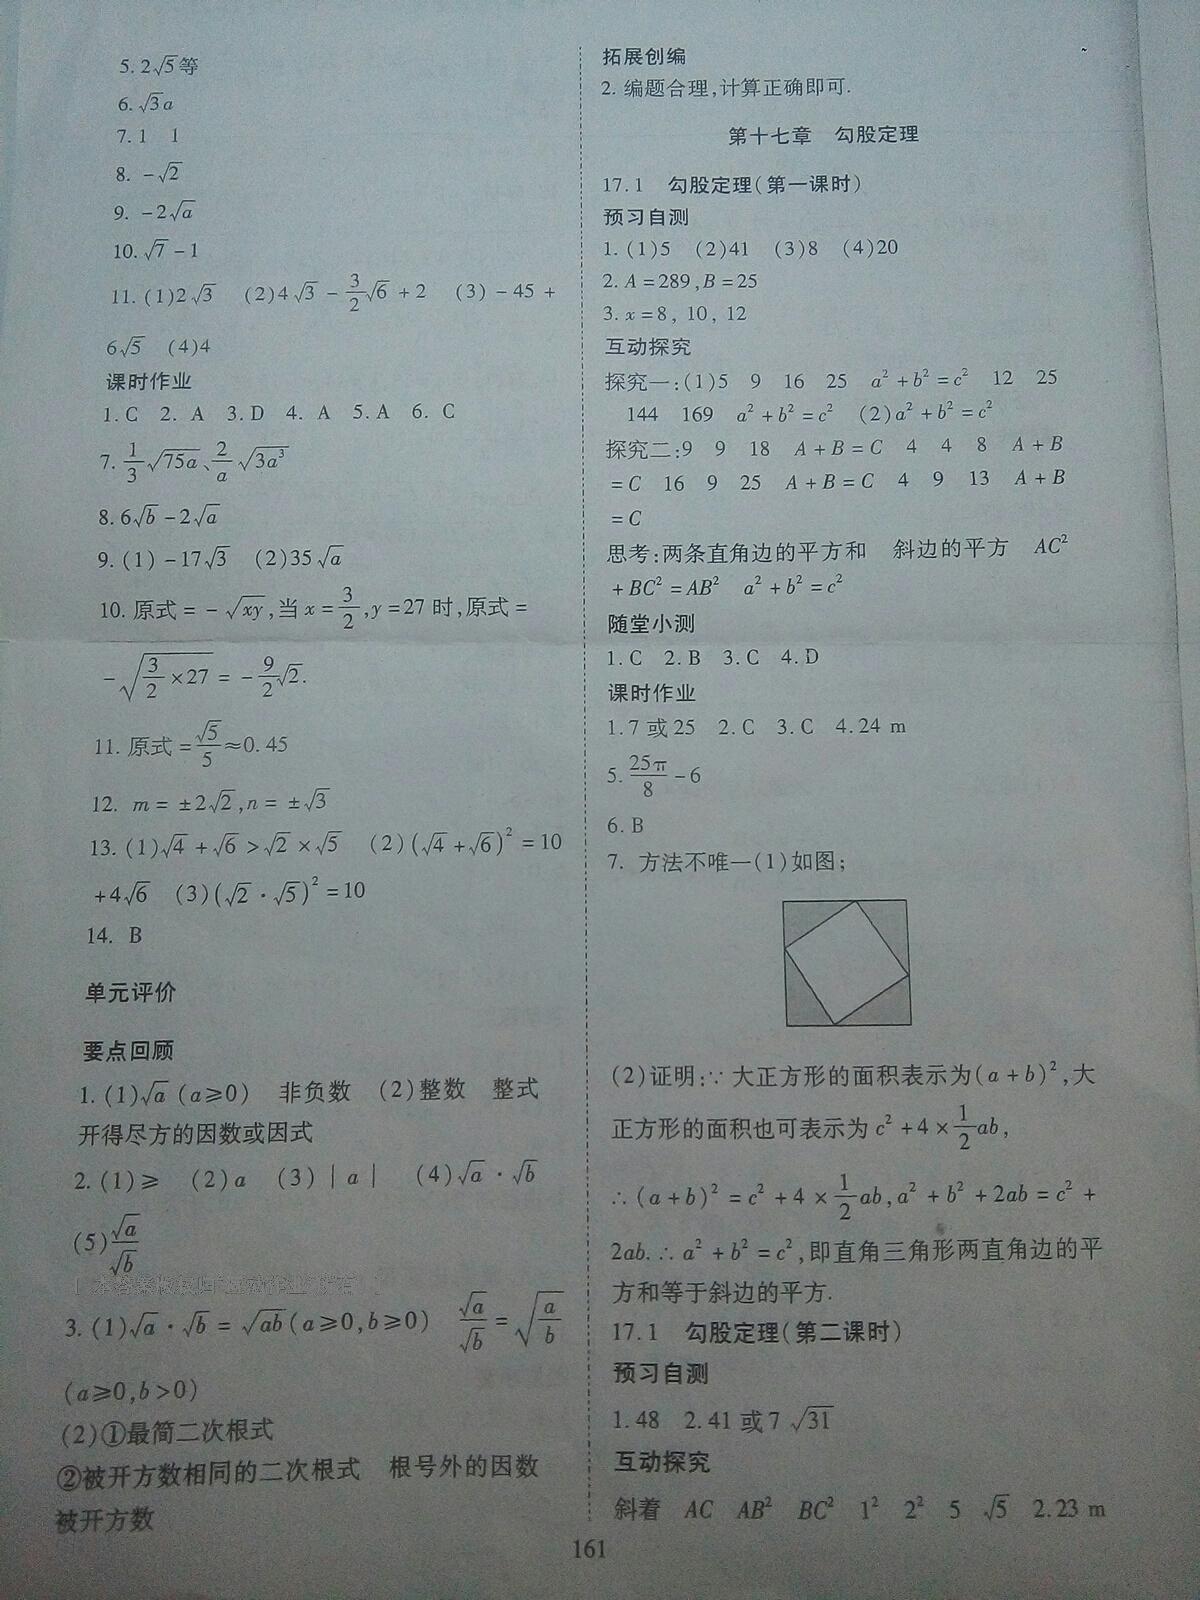 5. 2√5等
6. √3a
7. 1　1
8. －√2
9. －2√a
10. √7－1
11. (1)2√3　(2)4√3－3/2√6＋2　(3)－45＋
6√5　(4)4
课时作业
1. C　2. A　3. D　4. A　5. A　6. C
7. 1/3√(75a)、2/a√(3a³)
8. 6√b－2√a
9. (1)－17√3　(2)35√a
10. 原式＝－√(xy),当x＝3/2,y＝27时,原式＝
－√(3/2×27)＝－9/2√2.
11. 原式＝√5/5≈0.45
12. m＝±2√2,n＝±√3
13. (1)√4＋√6＞√2×√5　(2)(√4＋√6)²＝10
＋4√6　(3)(√2·√5)²＝10
14. B
单元评价
要点回顾
1. (1)√a (a≥0)　非负数　(2)整数　整式
开得尽方的因数或因式
2. (1)≥　(2)a　(3)|a|　(4)√a·√b
(5)√a/√b
3. (1)√a·√b＝√(ab)(a≥0,b≥0)　√a/√b＝√(a/b)
(a≥0,b>0)
(2)①最简二次根式
②被开方数相同的二次根式　根号外的因数
被开方数
拓展创编
2. 编题合理,计算正确即可.
第十七章　勾股定理
17.1　勾股定理(第一课时)
预习自测
1. (1)5　(2)41　(3)8　(4)20
2. A＝289,B＝25
3. x＝8, 10, 12
互动探究
探究一:(1)5　9　16　25　a²＋b²＝c²　12　25
144　169　a²＋b²＝c²　(2)a²＋b²＝c²
探究二:9　9　18　A＋B＝C　4　4　8　A＋B
＝C　16　9　25　A＋B＝C　4　9　13　A＋B
＝C
思考:两条直角边的平方和　斜边的平方　AC²
＋BC²＝AB²　a²＋b²＝c²
随堂小测
1. C　2. B　3. C　4. D
课时作业
1. 7或25　2. C　3. C　4. 24 m
5. 25π/8－6
6. B
7. 方法不唯一(1)如图;
(2)证明:∵大正方形的面积表示为(a＋b)²,大
正方形的面积也可表示为c²＋4×1/2ab,
∴(a＋b)²＝c²＋4×1/2ab,a²＋b²＋2ab＝c²＋
2ab.∴a²＋b²＝c²,即直角三角形两直角边的平
方和等于斜边的平方.
17.1　勾股定理(第二课时)
预习自测
1. 48　2. 41或7 √31
互动探究
斜着　AC　AB²　BC²　1²　2²　5　√5　2.23 m
161